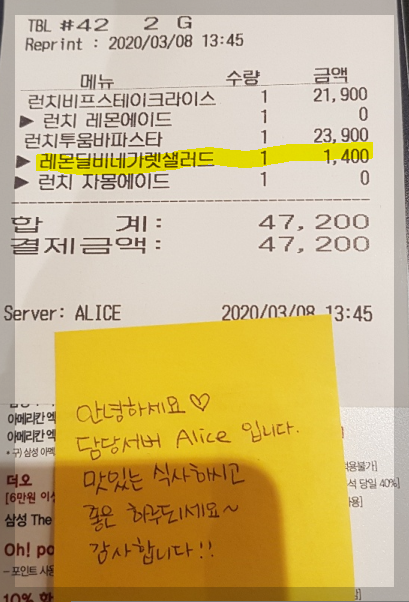 TBL #42 2 G
Reprint : 2020/03/08 13:45
메뉴 수량 금액
런치비프스테이크라이스 1 21,900
▶ 런치 레몬에이드 1 0
런치투움바파스타 1 23,900
▶ 레몬딜비네가렛샐러드 1 1,400
▶ 런치 자몽에이드 1 0
합 계: 47,200
결제금액: 47,200
Server: ALICE 2020/03/08 13:45
안녕하세요♡
담당서버 Alice 입니다.
맛있는 식사하시고
좋은 하루되세요~
감사합니다!!
아메리칸 엑
아메리칸 엑
* 구) 삼성 아멕
더오
[6만원 이상
적용불가]
석 당일 40%]
삼성 The
Oh! po
– 포인트 사용
10% 할